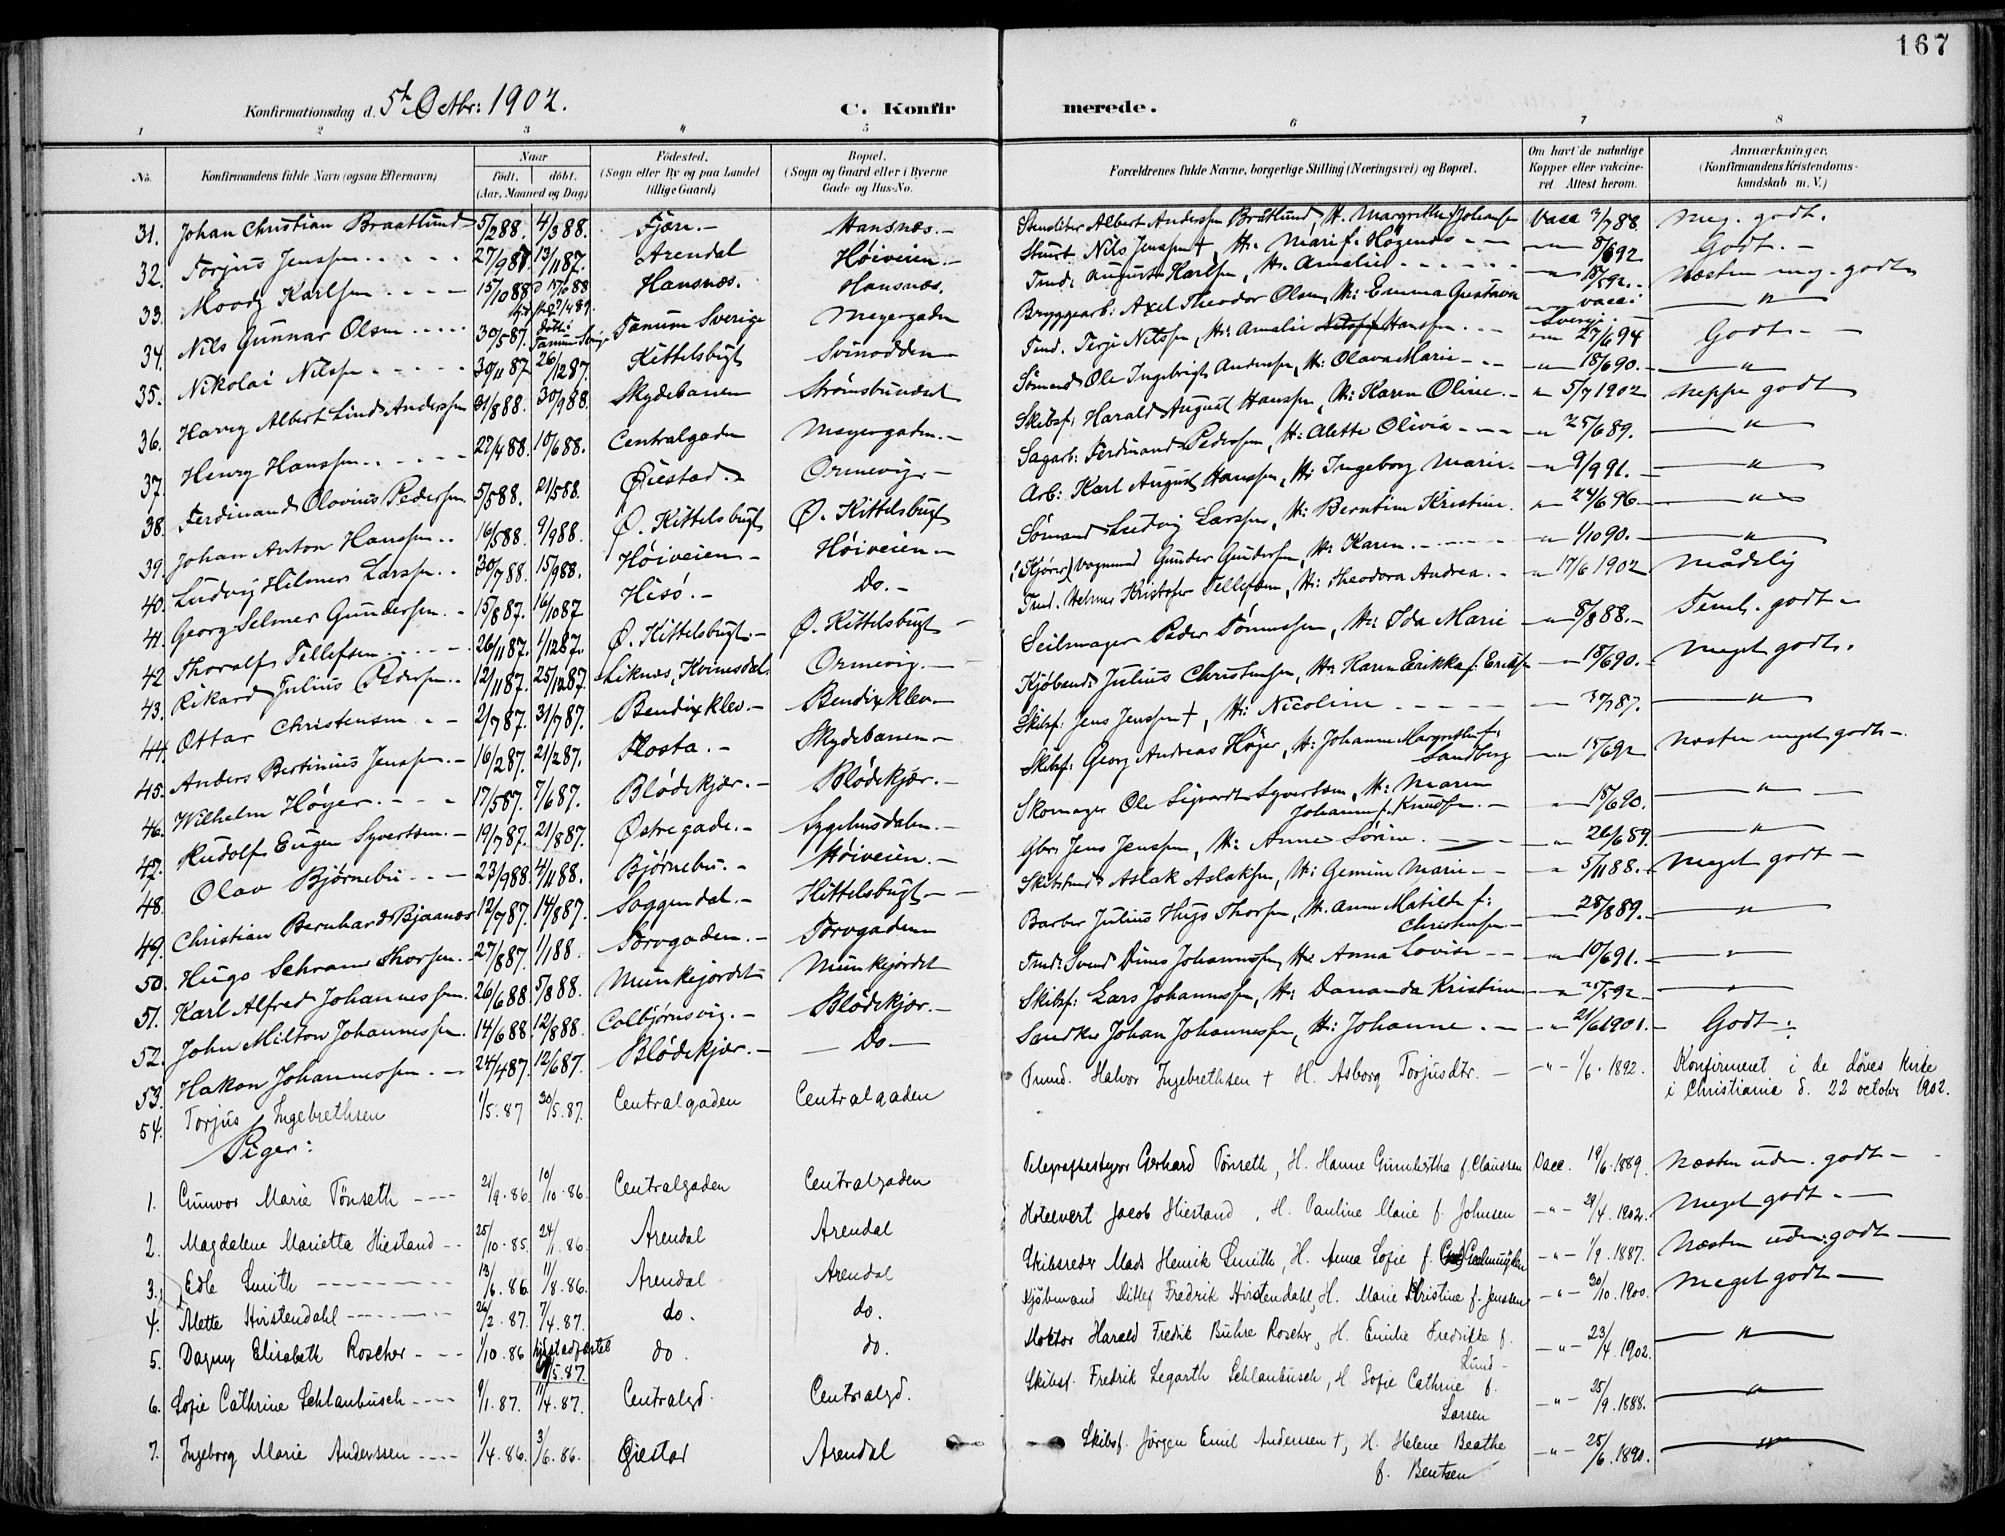 167
Konfirmationsdag d. 5te Octbr: 1902. C. Konfirmerede.
1 2 3 4 5 6 7 8
No. Konfirmandens fulde Navn (ogsaa Efternavn) Naar Født. døbt. (Aar, Maaned og Dag) Fødested. (Sogn eller By og paa Landet tillige Gaard) Bopæl. (Sogn og Gaard eller i Byerne Gade og Hus-No. Forældrenes fulde Navne, borgerlige Stilling (Næringsvei) og Bopæl. Om havt de naturlige Kopper eller vakcineret. Attest herom. Anmærkninger, (Konfirmandens Kristendomskundskab m. V.)
31. Johan Christian Braatlund 5/2 88. 4/3 88. Fjære.- Hansnæs.- Albert Anderssen Bråtlund, H. Margrethe Johansen Vacc 3/7 88. Meg. godt.
32. Torjus Jenssen 27/9 87. 13/11 87. Arendal Høiveien.- Stuert Nils Jenssen †, H: Marie f. Høgenes - " - 8/6 92 Godt.-
33. Moody Karlsen 15/10 88 Hansnæs. Hansnæs. Tmd: August Karlsen, H: Amalie - " - 18/5 92.- Næsten meg. godt
34. Nils Gunnar Olsen 30/5 87. døbt i Tanum Sverige Tanum Sverige Meyergaden Bryggearb: Axel Theodor Olsen, H: Emma Gustava - " - vacc: Sverige - " -
35. Nikolai Nilssen 30/11 87 26/12 87 Kittelsbugt Svinodden Tmd. Terje Nilssen, H: Amalie Hanssen - " - 27/6 94 Godt -
36. Harry Albert Lind Anderssen 31/8 88. 30/9 88. Skydebanen Strømsbundet Sømand Ole Ingebrigt Anderssen, H: Olava Marie - " - 18/6 90. - " -
37. Henry Hanssen 27/4 88. 10/6 88. Centralgaden Meyergaden.- Skibsf: Harald August Hanssen, H: Karen Oline.- " 5/7 1902 neppe godt
38. Ferdinand Olovius Pedersen 5/5 88. 21/5 88. Øiestad.- Ormevig.- Sagarb: Ferdinand Pedersen, H: Alette Olivia - " - 25/6 89. - " -
39. Johan Anton Hanssen 16/5 88. 9/9 88. Ø. Kittelsbugt Ø. Kittelsbugt Arb: Karl August Hanssen, H: Ingeborg Marie. - " - 9/9 91. - " -
40. Ludvig Hilmer Larssen 30/7 88. 15/9 88. Høiveien - Høiveien - Sømand Ludvig Larssen, H: Berntine Kristine. " - 24/6 96. - " -
41. Georg Selmer Gundersen 15/8 87. 16/10 87 Hisö.- Do.- (Kjører) Vognmand Gunder Gundersen, H: Karen - " - 1/10 90. - " -
42 Thoralf Tellefsen 26/11 87. 1/12 87. Ø. Kittelsbugt.- Ø. Kittelsbugt - Tmd. Helmer Kristofer Tellefsen, H: Theodora Andrea - " 17/6 1902 mådelig
43. Rikard Julius Pedersen 12/11 87. 25/12 87. Liknæs, Kvinesdal. Ormevig.- Seilmager Peder Tønnessen, H: Ida Marie - " - 8/8 88.- Teml. godt -
44. Ottar Christensen 2/7 87. 31/7 87. Bendixklev.- Bendixklev.- Kjøbmd: Julius Christensen, H: Karen Erikka f. Eriksen - " - 18/6 90. Meget godt.
45. Anders Bertinius Jenssen 16/2 87. 21/2 87. Flosta.- Skydebanen - Skibsf: Jens Jenssen †, H: Nicoline - 3/7 87. - " -
46. Wilhelm Höyer 17/5 87. 7/6 87. Blødekjær.- Blødekjær.- Skibsf: Georg Andreas Höyer, H: Johanne Margrethe f. Sandberg - " - 15/6 92 Næsten meget godt -
47. Rudolf Eugen Syvertsen 19/7 87. 21/8 87. Østregade.- Sygehusdalen.- Skomager Ole Sigvardt Syvertsen, H: Maren Johanne f. Knudsen.- " 18/6 90. - " -
48. Olav Bjørnebu 23/9 88. 4/11 88. Bjørnebu.- Høiveien.- Gbr. Jens Jenssen, H: Anne Sørine. - " - 26/6 89. - " -
49. Christian Bernhard Bjaanæs 12/7 87. 14/8 87. Soggendal.- Kittelsbugt.- Skibstmd: Aslak Aslaksen, H: Gemine Marie - " 5/11 88.- Meget godt -
50. Hugo Schram Thorsen. 27/8 87. 1/1 88. Torvgaden.- Torvgaden Barber Julius Hugo Thorsen, H. Anne Matilde f: Christensen - 28/8 89. - " -
51. Karl Alfred Johannessen. 26/6 88. 5/8 88. Munkejordet Munkejordet Tmd: Svend Dines Johannessen, H: Anna Lovise - " - 10/6 91. - " -
52. John Milton Johannessen. 14/6 88. 12/8 88. Colbjørnsvig.- Blødekjær.- Skibsf: Lars Johannessen, H: Dananda Kristine - " 25/5 92 - " -
53. Hakon Johannessen. 24/4 87. 12/6 87. Blødekjær.- - Do - Johan Johannessen, H: Johanne. - " - 21/6 1901.- Godt:
54. Torjus Ingebrethsen 1/5.87 30/5.87. Centralgaden Centralgaden Tmd. Halvor Ingebrethsen † H. Asborg Torjusdtr. - " - 1/6.1892. Konfirmeret i de døves kirke i Christiania d. 22 october 1902.
Piger:
1. Gunvor Marie Tönseth 21/9.86. 10/10.86. Centralgaden Centralgaden Telegrafbestyrer Gerhard Tönseth, H. Hanne f. Claussen Vacc. 19/6.1889. Næsten udm. godt -
2. Magdalene Marietta Hiestand 25/10.85. 24/1.86. Arendal Arendal Hotelvert Jacob Hiestand, H. Pauline Marie f. Johnsen - " - 29/4.1902. Meget godt.-
3. Edle Smith 13/6.86. 11/8.86. Arendal Arendal Skibsreder Mads Henrik Smith, H. Anna Sofie f. Geelmuyden - " - 1/9.1887. Næsten udm. godt -
4. Alette Hirstendahl 26/2.87. 7/4.87. do. do. Kjöbmand Ditlef Fredrik Hirstendahl, H. Marie Kristine f. Jenssen - " - 30/10.1900. Meget godt -
5. Dagny Elisabeth Roscher 1/10.86 /5.87. do. do. Doktor Harald Fredrik Buhre Roscher, H. Emilie Fredrikke f. Lund - " - 23/4.1902. - " -
6. Sofie Cathrine Schlanbusch 9/1.87. 11/4.87. Centralgd. Centralgd. Skibsf. Fredrik Legarth Schlanbusch, H. Sofie Cathrine f. Larsen - " - 25/9.1888. - " -
7. Ingeborg Marie Anderssen 1/4.86. 3/6.86. Øiestad Arendal Skibsf. Jørgen Emil Anderssen †, H. Helene Beathe f. Bentzen - " - 25/6.1890. - " -